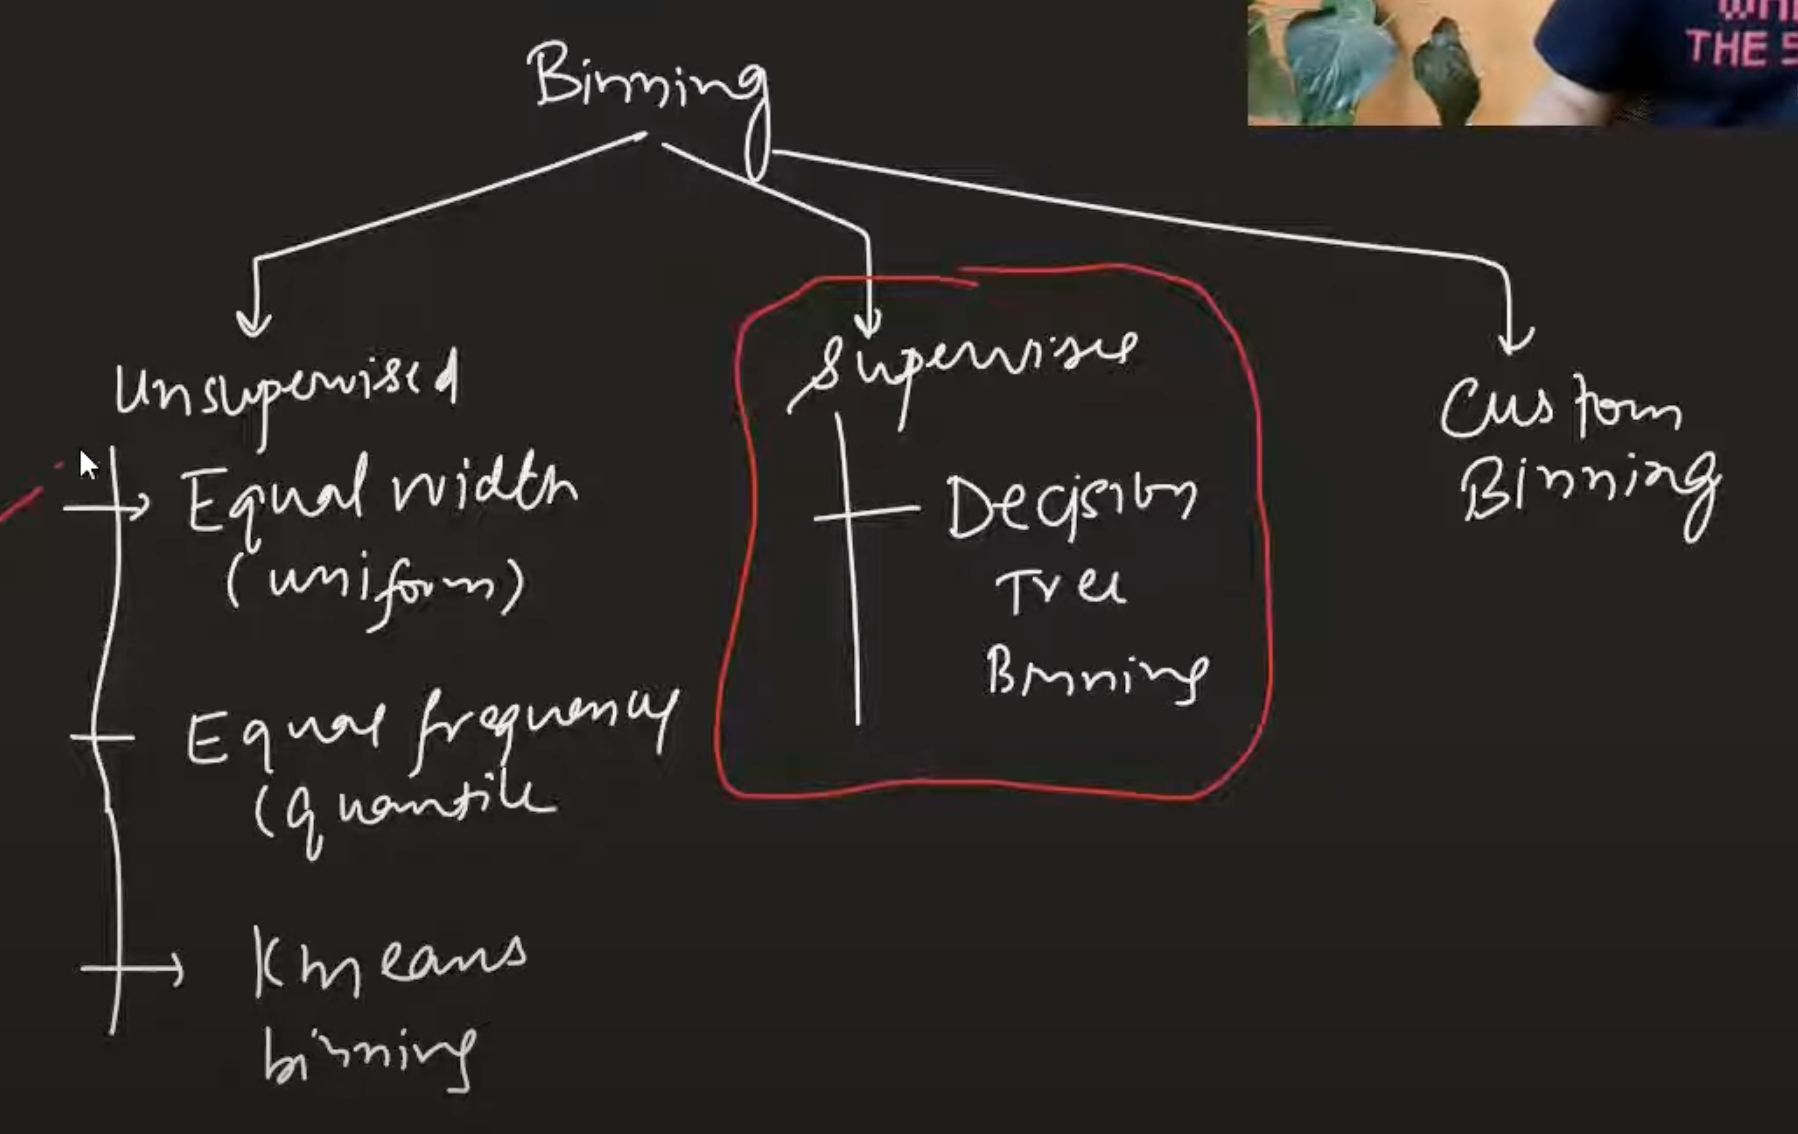 Binning
Unsupervised
Equal width
(uniform)
Equal frequency
(quantile
Kmeans
binning
Supervised
Decision
Tree
Binning
Custom
Binning
THE